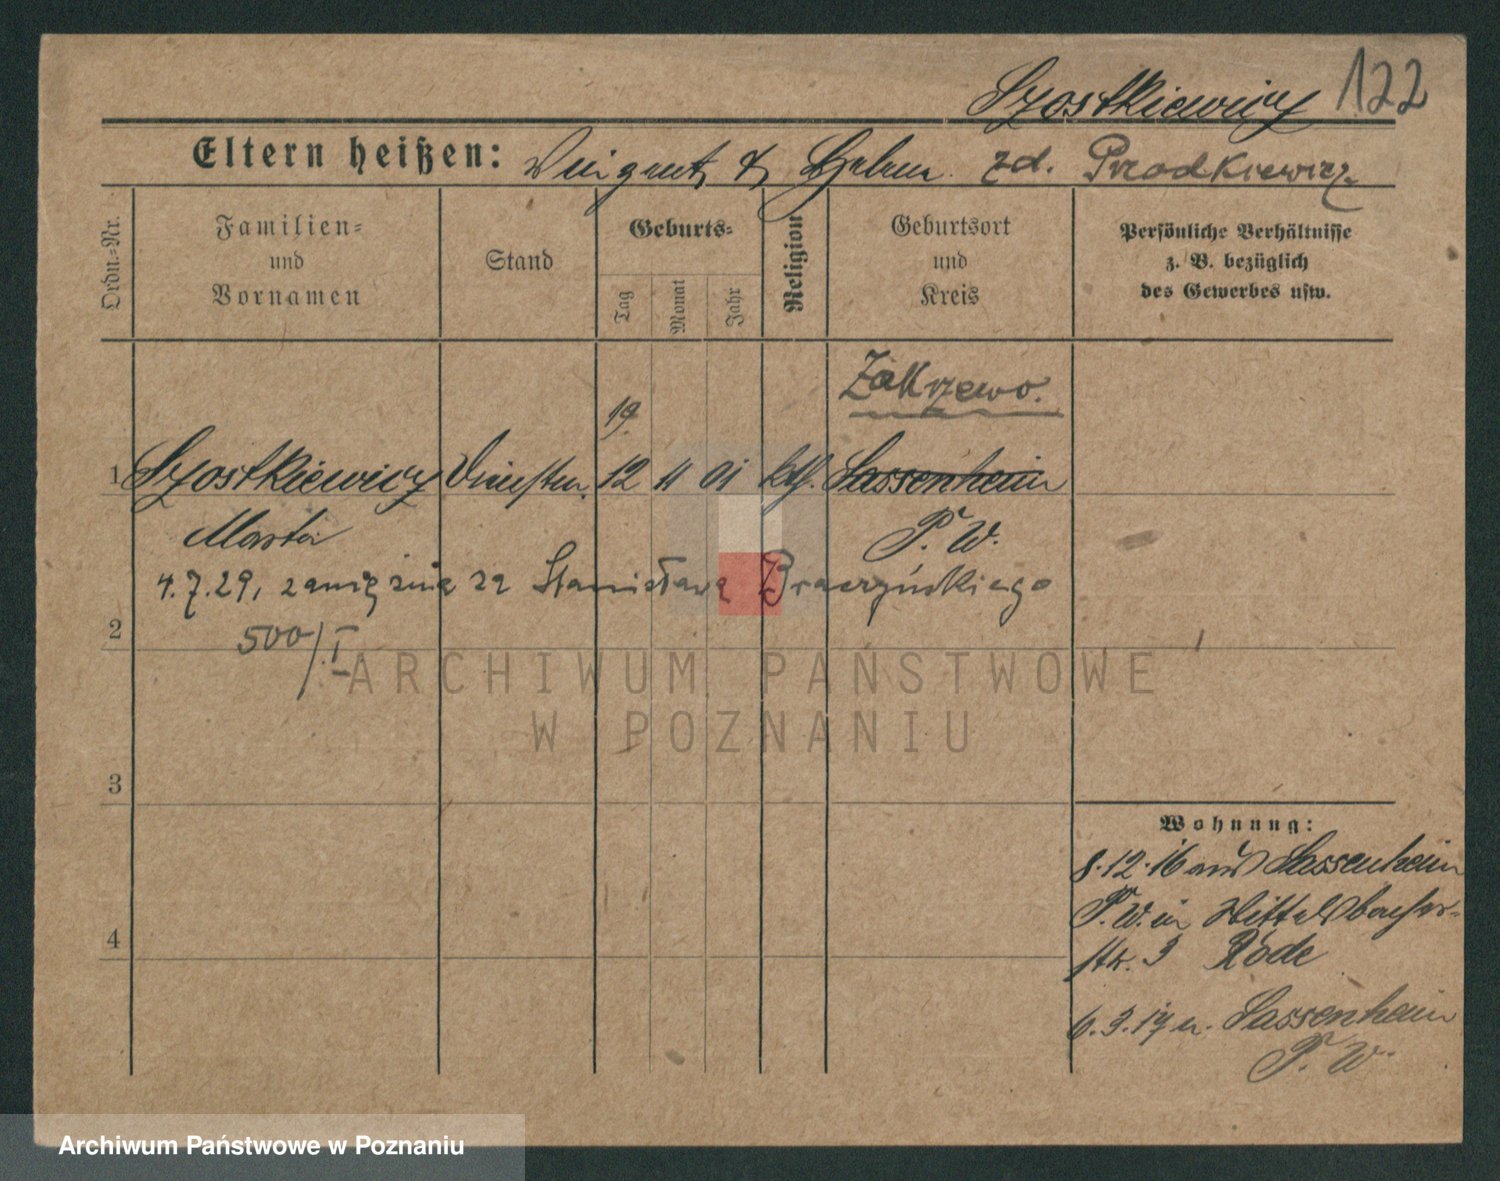 Szostkiewicz 122
Eltern heißen: & Helene zd. Przodkiewicz
Ordn.=Nr.
Familien=
und
Vornamen
Stand
Geburts=
Tag
Monat
Jahr
Religion
Geburtsort
und
Kreis
Persönliche Verhältnisse
z. B. bezüglich
des Gewerbes usw.
Zakrzewo.
19.
1 Szostkiewicz 12 11 01 kth. Sassenheim
Marta P. W.
4.7.29, zamężna za Stanisława
2
500/I
ARCHIWUM PAŃSTWOWE
W POZNANIU
3
Wohnung:
8.12.16 aus Sassenheim
P. W. in Wittelsbacher-
4
str. 3 Rode
6.3.17 n. Sassenheim
P. W.
Archiwum Państwowe w Poznaniu